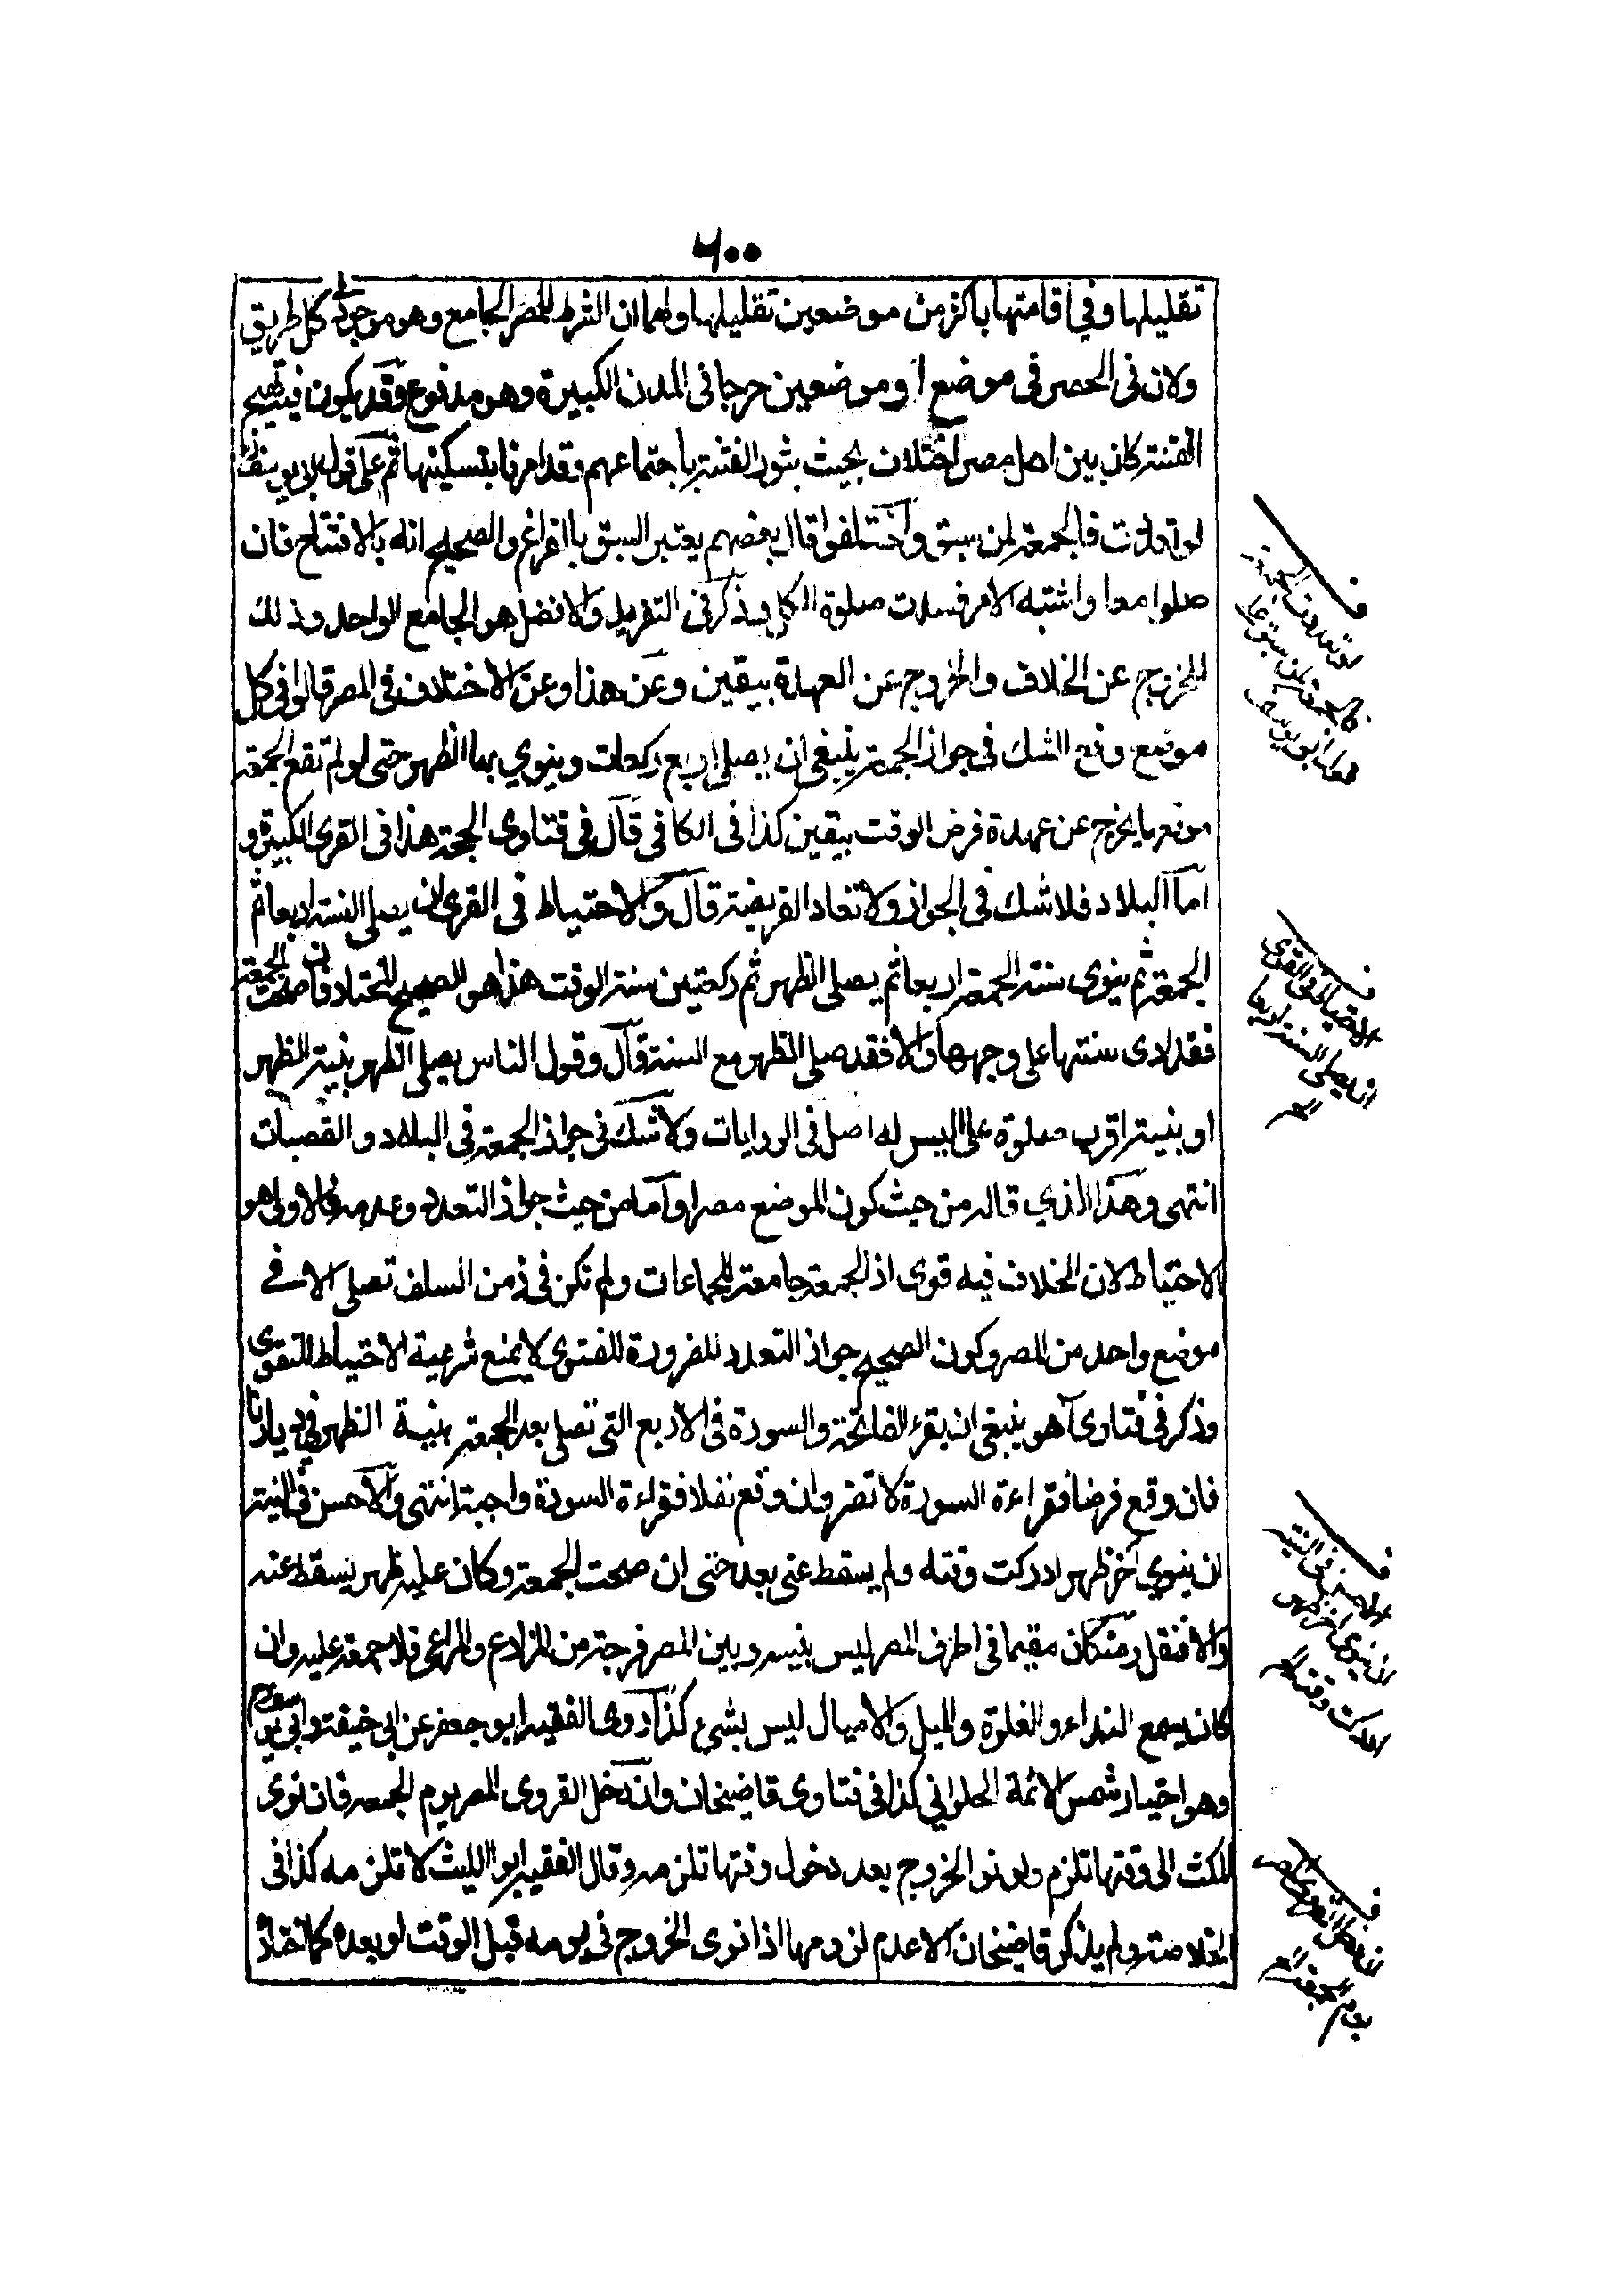 ٦٠٠
تقليلها وفي اقامتها باكثر من موضعين تقليلها ولهما ان الشرط المصر الجامع وهو موجود في كل طريق
ولان في الحصر في موضع او موضعين حرجا في المدن الكبيرة وهو مدفوع وقد يكون فيه تهييج
الفتنة كان بين اهل مصر اختلاف بحيث يثور الفتنة باجتماعهم وقد امرنا بتسكينها ثم على قول ابي يوسف
لو تعددت فالجمعة لمن سبق واختلفوا قال بعضهم يعتبر السبق بالفراغ والصحيح انه بالافتتاح فان
صلوا معا واشتبه الامر فسدت صلوة الكل وذكر في التفريد والافضل هو الجامع الواحد وذلك
للخروج عن الخلاف والخروج عن العهدة بيقين وعن هذا وعن الاختلاف في المصر قالوا في كل
موضع وقع الشك في جواز الجمعة ينبغي ان يصلي اربع ركعات وينوي بها الظهر حتى لو لم تقع الجمعة
موقعها يخرج عن عهدة فرض الوقت بيقين كذا في الكافي قال في فتاوى الحجة هذا في القرى الكبيرة و
اما البلاد فلا شك في الجواز ولا تعاد الفريضة قال والاحتياط في القرى ان يصلي السنة اربعا ثم
الجمعة ثم ينوى سنة الجمعة اربعا ثم يصلي الظهر ثم ركعتين سنة الوقت هذا هو الصحيح المختار فان صحت الجمعة
فقد ادى سنتها على وجهها والا فقد صلى الظهر مع السنة قال وقول الناس يصلي الظهر بنية الظهر
او بنية اقرب صلوة على ليس له اصل في الروايات ولا شك في جواز الجمعة في البلاد والقصبات
انتهى وهذا الذي قاله من حيث كون الموضع مصرا واما من حيث جواز التعدد وعدمه فالاولى هو
الاحتياط لان الخلاف فيه قوى اذ الجمعة جامعة للجماعات ولم تكن في زمن السلف تصلى الا في
موضع واحد من المصر وكون الصحيح جواز التعدد للضرورة للفتوى لا يمنع شرعية الاحتياط للتقوى
وذكر في فتاوى آهو ينبغي ان يقرء الفاتحة والسورة في الاربع التي تصلى بعد الجمعة بنية الظهر في ديارنا
فان وقع فرضا فقراءة السورة لا تضر وان وقع نفلا فقراءة السورة واجبة انتهى والاحسن في النية
ان ينوي آخر ظهر ادركت وقته ولم يسقط عني بعد حتى ان صحت الجمعة وكان عليه ظهر يسقط عنه
والا فنفل ومن كان مقيما في اطرف المصر ليس بينه وبين المصر فرجة من المزارع والمراعي فلا جمعة عليه وان
كان يسمع النداء والغلوة والميل والاميال ليس بشيء كذا روى الفقيه ابو جعفر عن ابي حنيفة وابي يوسف
وهو اختيار شمس الائمة الحلواني كذا في فتاوى قاضيخان وان دخل القروى المصر يوم الجمعة فان نوى
المكث الى وقتها تلزم ولو نوا الخروج بعد دخول وقتها تلزمه وقال الفقيه ابو الليث لا تلزمه كذا في
الخلاصة ولم يذكر قاضيخان الا عدم لزومها اذا نوى الخروج في يومه قبل الوقت او بعده كما تختار
ف
لو تعددت الجمعة
فالجمعة لمن سبق على
ابو يوسف
ف
الاحتياط في القرى
ان يصلي السنة اربعا
ف
الاحسن في النية
ان ينوي آخر ظهر
ادركت وقته
ف
ان دخل القروى المصر
يوم الجمعة